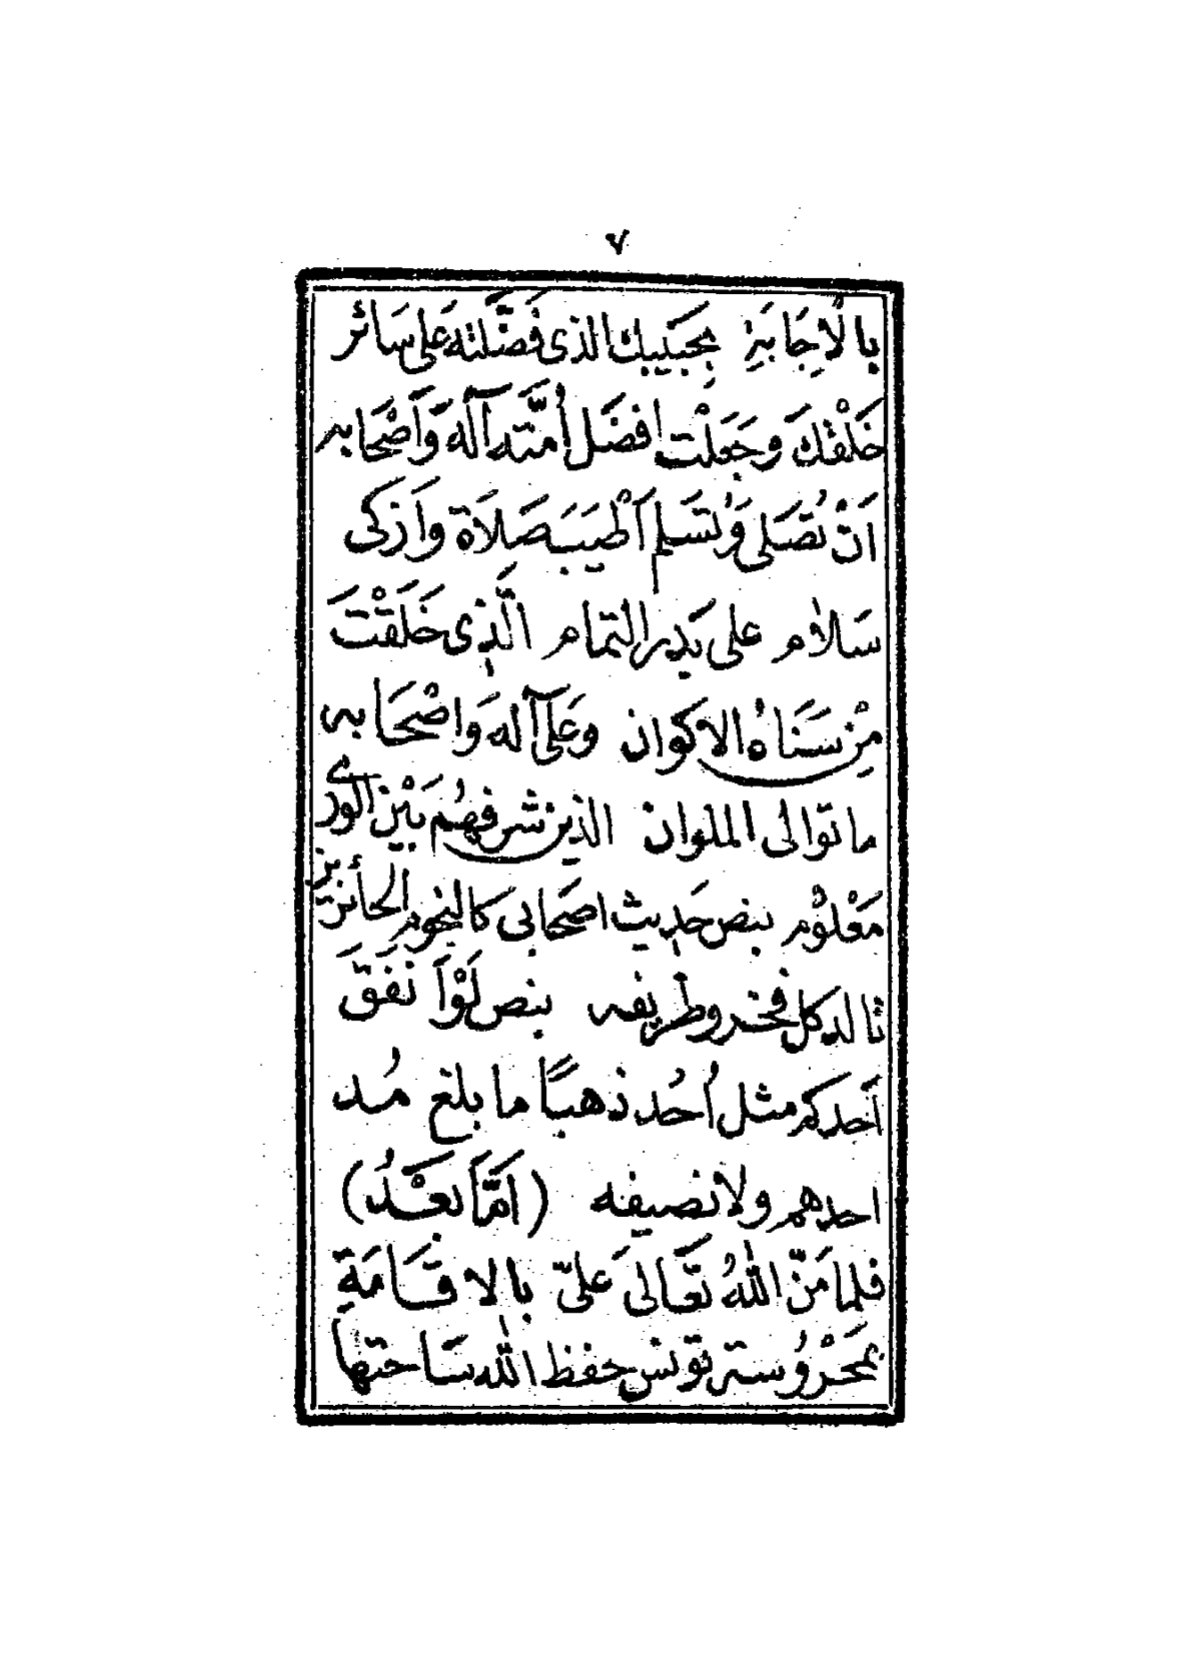 ٧
بالْاِجَابَةِ بِحَبَيبك الذى فَضَّلته عَلى سَائر
خَلْقكَ وجَعَلْت افضَل اُمَّته آله وَاَصْحابه
اَنْ تُصَلى وَتُسَلم اَطْيَبَ صَلَاة وَاَزكى
سَلام على بَدر التمام الَّذِى خَلَقْتَ
مِنْ سَنَاهُ الاكوان وعَلى آله وَاصْحَابه
ما توَالى الملوان الذين شرفهُم بَيْن الورى
مَعْلوُم بنص حَدِيث اصَحابى كالنجوم الحائزين
تالد كل فخر وطريفه بنص لَوْاَنفَقَ
اَحدكم مثل اُحُد ذهبًا ما بلغ مُد
احدهم ولا نصيفه (اَمَّا بَعْدُ)
فلما مَنّ اللهُ تَعَالى عَلىّ بالاقَامَةِ
بمَحْرُوسة تونس حفظ الله سَاحتها